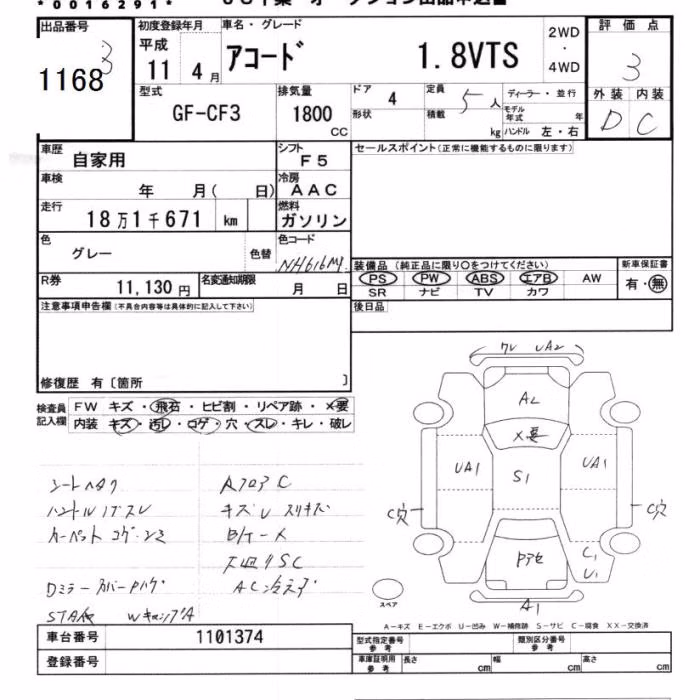 * 0 0 1 6 2 9 1 *
出品番号 1168 3
初度登録年月 平成 11 4 月
車名・グレード アコード 1.8VTS
2WD ・ 4WD
評価点 3
外装 D 内装 C
型式 GF-CF3
排気量 1800 CC
ドア 4 形状
定員 5 人 積載 kg
ディーラー・並行
モデル年式 年
ハンドル 左・右
車歴 自家用
シフト F5
セールスポイント(正常に機能するものに限ります)
車検 年 月( 日)
冷房 AAC
走行 18万1千671 km
燃料 ガソリン
色 グレー 色替
色コード NH616M
装備品 (純正品に限り〇をつけてください)
PS PW ABS エアB AW
SR ナビ TV カワ
新車保証書 有・無
R券 11,130 円
名変通知期限 月 日
注意事項申告欄(不具合内容等は具体的に記入して下さい)
後日品
修復歴 有〔箇所 〕
検査員記入欄
FW キズ・飛石・ヒビ割・リペア跡・×要
内装 キズ・汚レ・コゲ・穴・スレ・キレ・破レ
ワレ UA2
AL
X要
UA1 S1 UA1
C穴 C穴
C1
U1
A1
スペア
シートヘタク AフロアC
ハンドル
カーペット コゲ
AC
Dミラー
A-キズ E-エクボ U-凹み W-補修跡 S-サビ C-腐食 XX-交換済
車台番号 1101374
登録番号
型式指定番号 参考
類別区分番号 参考
車庫証明用 参考 長さ cm 幅 cm 高さ cm